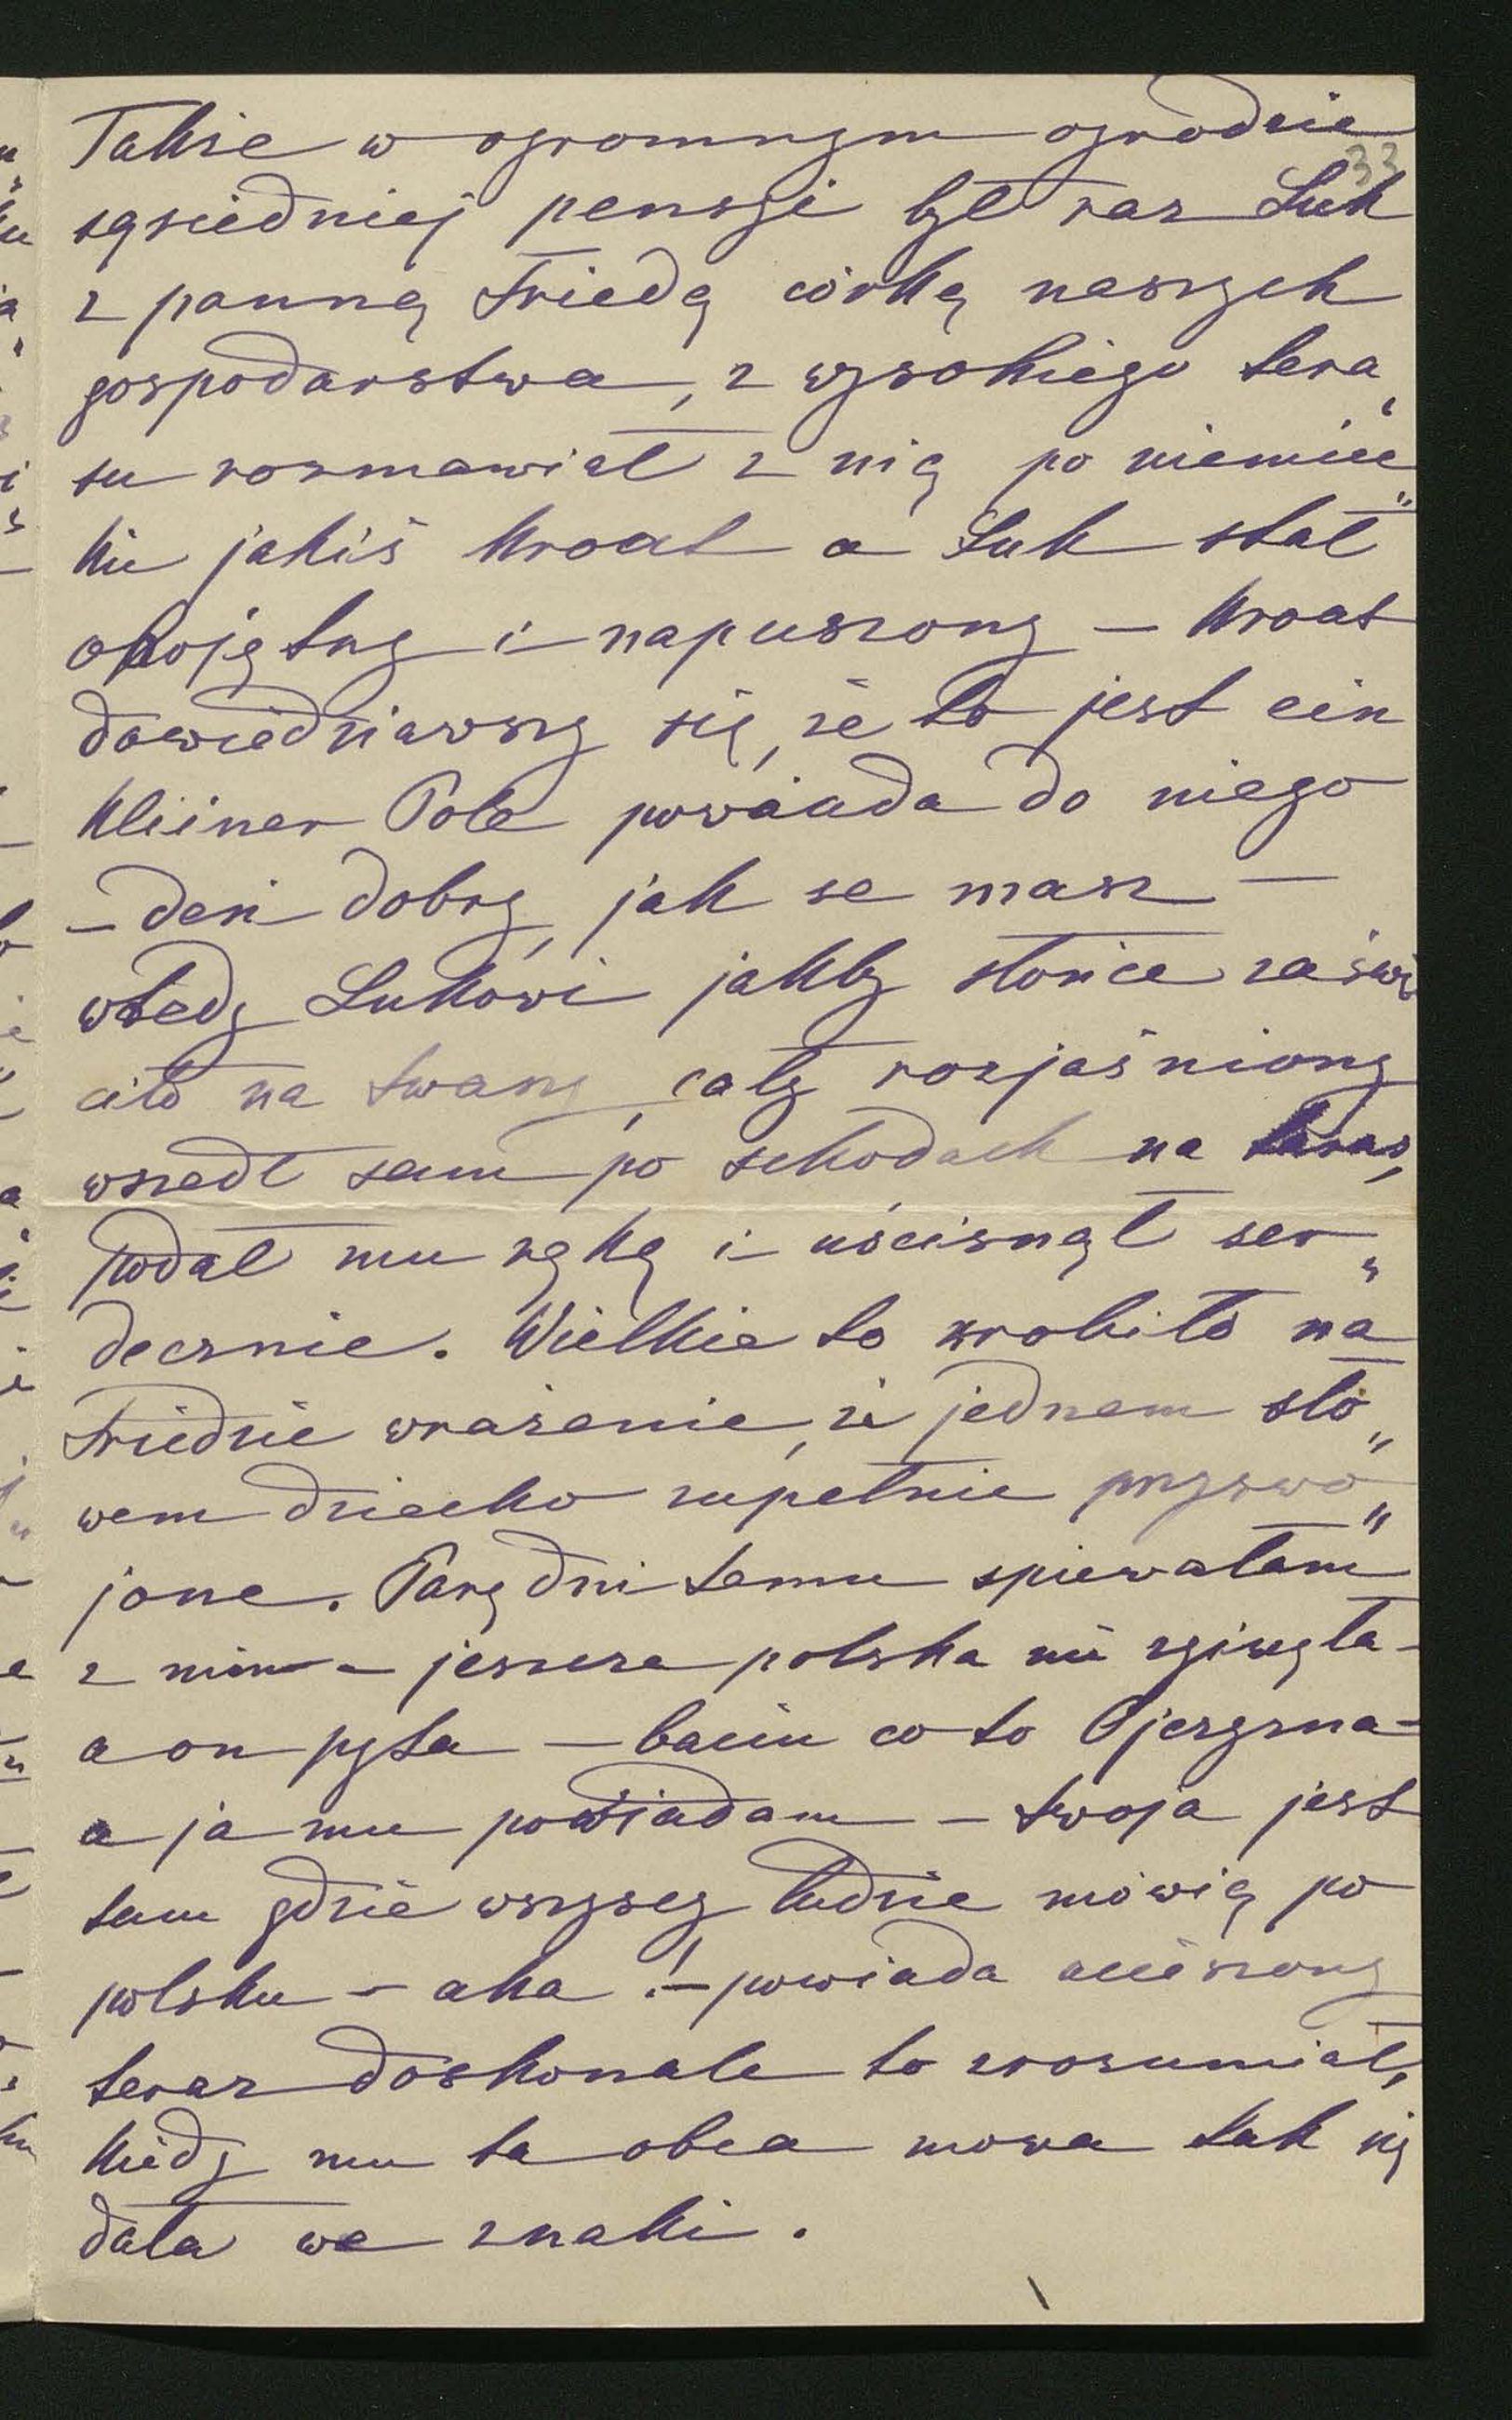 Także w ogromnym ogrodzie
33
sąsiedniej pensyi był raz Luk
z panną Friedą córką naszych
gospodarstwa, z wysokiego tera„
su rozmawiał z nią po niemiec„
ku jakiś Kroat a Luk stał
obojętny i napuszony – Kroat
dowiedziawszy się, że to jest ein
kleiner Pole powiada do niego
– deń dobry, jak se masz –
wtedy Lukowi jakby słońce zaświ
ciło na twarzy, cały rozjaśniony
wszedł sam po schodach na taras,
podał mu rękę i uścisnął ser„
decznie. Wielkie to zrobiło na
Friedzie wrażenie, że jednem sło„
wem dziecko zupełnie przyswo„
jone. Parę dni temu spiewałam
z nim – jeszcze polska nie zginęła –
a on pyta – baciu co to Ojczyzna –
a ja mu powiadam – twoja jest
tam gdzie wszyscy ludzie mówią po
polsku – aha! – powiada ucieszony
teraz doskonale to zrozumiał,
kiedy mu ta obca mowa tak się
dała we znaki.